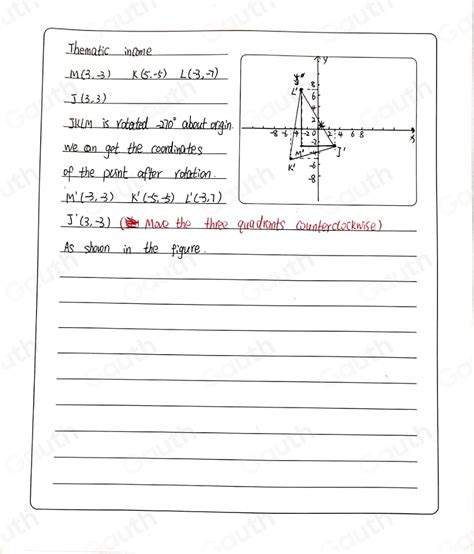 Thematic income
M(3,-3) K(5,-5) L(-3,-7)
J(3,3)
JKLM is rotated -270° about origin.
we can get the coordinates
of the point after rotation.
M'(-3,-3) K'(-5,-5) L'(-3,7)
J'(3,-3) (Move the three quadrants counterclockwise)
As shown in the figure.
y
L'
8
6
-8 -6 -4 -2 0 2 4 6 8
x
M'
J'
K'
-6
-8
Gauth